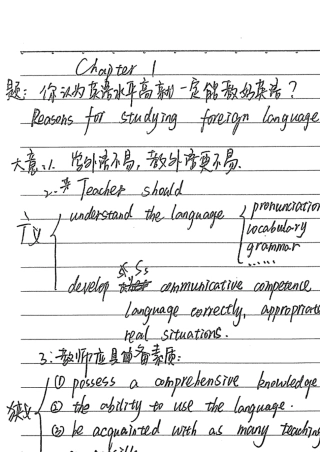 Chapter 1
题: 你认为英语水平高就一定能教好英语?
Reasons for studying foreign language
大意: 1. 学外语不易, 教外语更不易.
2. Teacher should
广义 understand the language pronunciation
vocabulary
grammar
......
Ss
develop communicative competence
language correctly, appropriate
real situations.
3: 教师应具备素质:
狭义 ① possess a comprehensive knowledge
② the ability to use the language.
③ be acquainted with as many teaching